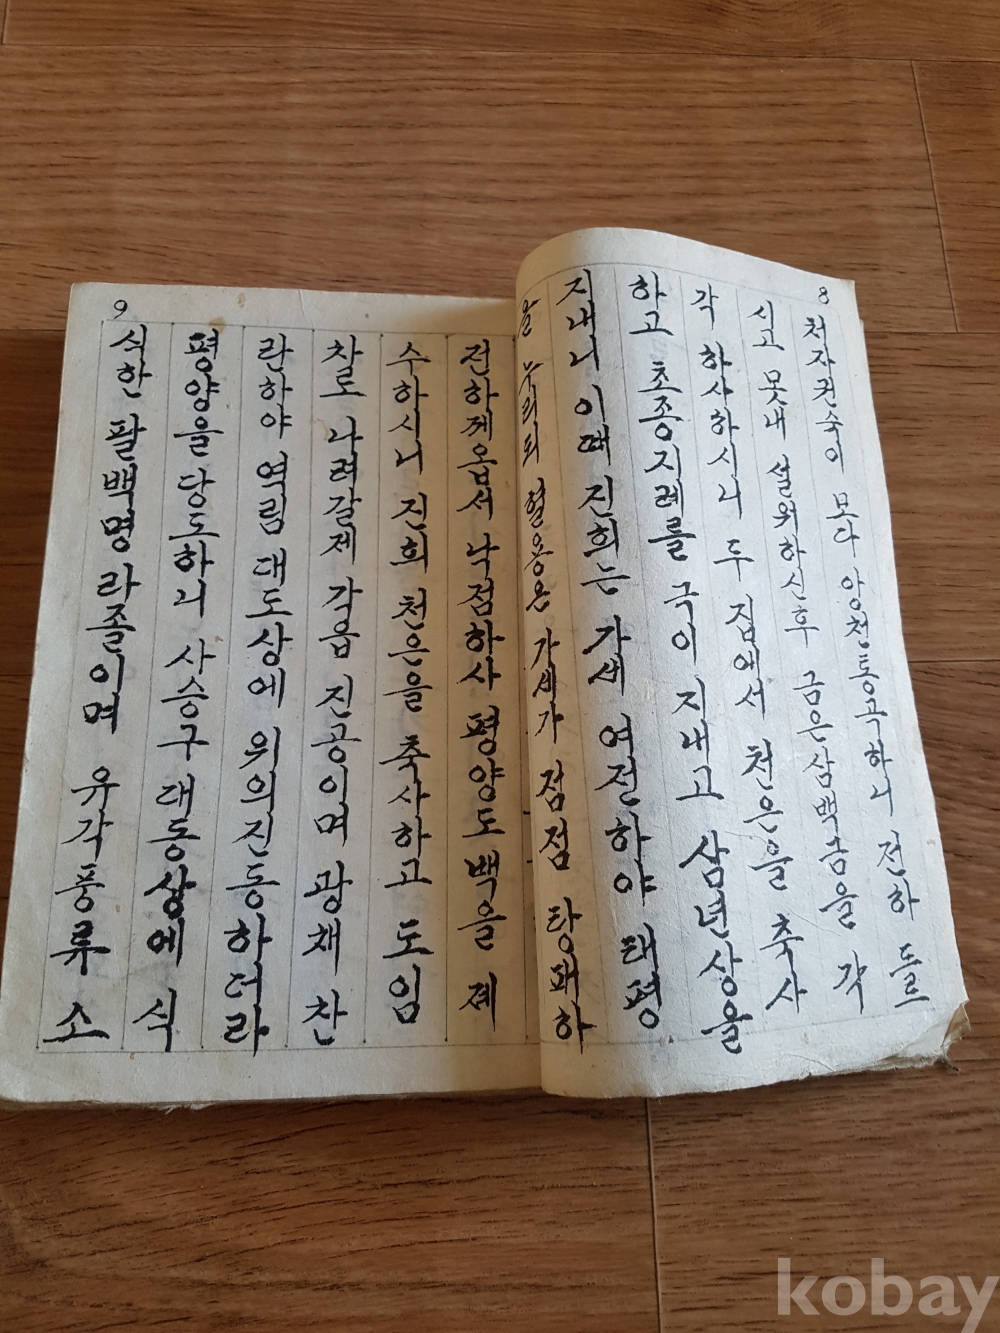 8
처자권속이 모다 앙천통곡하니 전하 들르
시고 못내 설워하신후 금은삼백금을 각
각 하사하시니 두 집에서 천은을 축사
하고 초종지례를 극이 지내고 삼년상을
지내니 이때 진희는 가세 여전하야 태평
을 누리되 혈용은 가세가 점점 탕패하
9
전하게옵서 낙점하사 평양도백을 제
수하시니 진희 천은을 축사하고 도임
찰도 나려갈제 각읍 진공이며 광채 찬
란하야 역림 대도상에 위의진동하더라
평양을 당도하니 사승구 대동상에 식
식한 팔백명 라졸이며 유각풍류 소
kobay